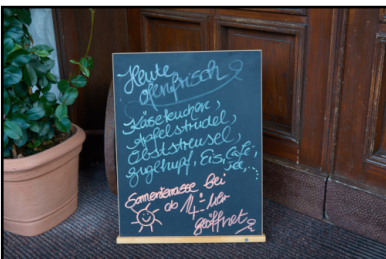 Heute
ofenfrisch
Käsekuchen,
Apfelstrudel,
Obststreusel,
Guglhupf, Eis, Café,
Sonnenterrasse bei
ab Uhr
geöffnet